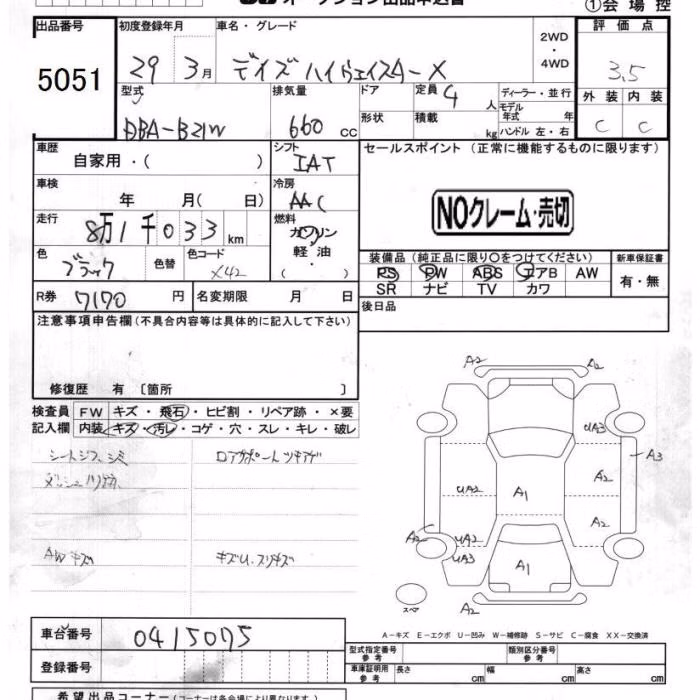 オークション出品申込書 ①会場控
出品番号 初度登録年月 車名・グレード 2WD・4WD 評価点
5051 29 3月 デイズ ハイウェイスターX 3.5
型式 排気量 ドア 定員 4人 ディーラー・並行 外装 内装
DBA-B21W 660cc 形状 積載 kg モデル年式 年 ハンドル 左・右 C C
車歴 自家用・( ) シフト IAT セールスポイント (正常に機能するものに限ります)
車検 年 月( 日) 冷房 AAC NOクレーム・売切
走行 8万1千033km 燃料 ガソリン 軽油 ・( )
色 ブラック 色替 色コード X42 装備品 (純正品に限り○をつけてください) 新車保証書
PS PW ABS エアB AW 有・無
SR ナビ TV カワ
R券 7170円 名変期限 月 日 後日品
注意事項申告欄 (不具合内容等は具体的に記入して下さい)
修復歴 有 〔箇所 〕
検査員 FW キズ・飛石・ヒビ割・リペア跡・×要
記入欄 内装 キズ・汚レ・コゲ・穴・スレ・キレ・破レ
シートシワ、シミ
AWキズ キズU.スリキズ
A2 A2
UA3
A3
UA2 A1 A2
A2
A2 UA2
UA3 A1
スペア A2
A-キズ E-エクボ U-凹み W-補修跡 S-サビ C-腐食 XX-交換済
車台番号 0415075
型式指定番号 参考 類別区分番号 参考
登録番号 車庫証明用 参考 長さ cm 幅 cm 高さ cm
希望出品コーナー (コーナーは各会場により異なります)